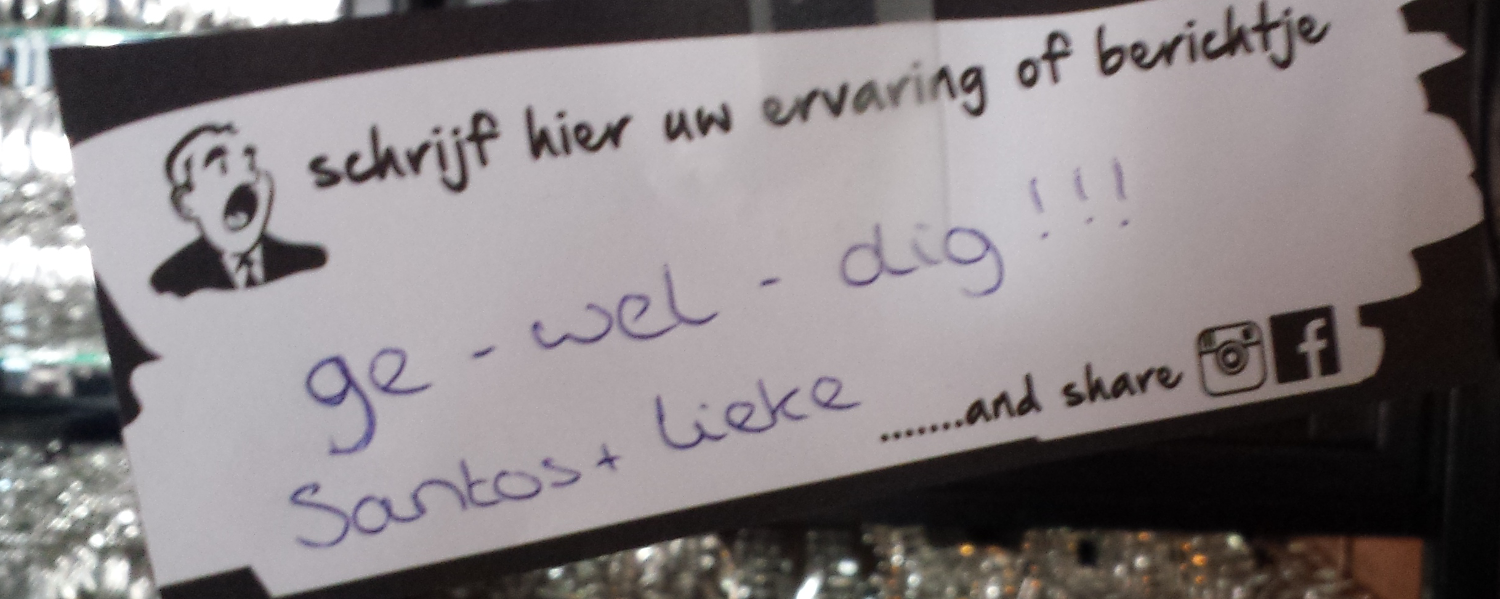 schrijf hier uw ervaring of berichtje
ge - wel - dig !!!
Santos + Lieke
.......and share f